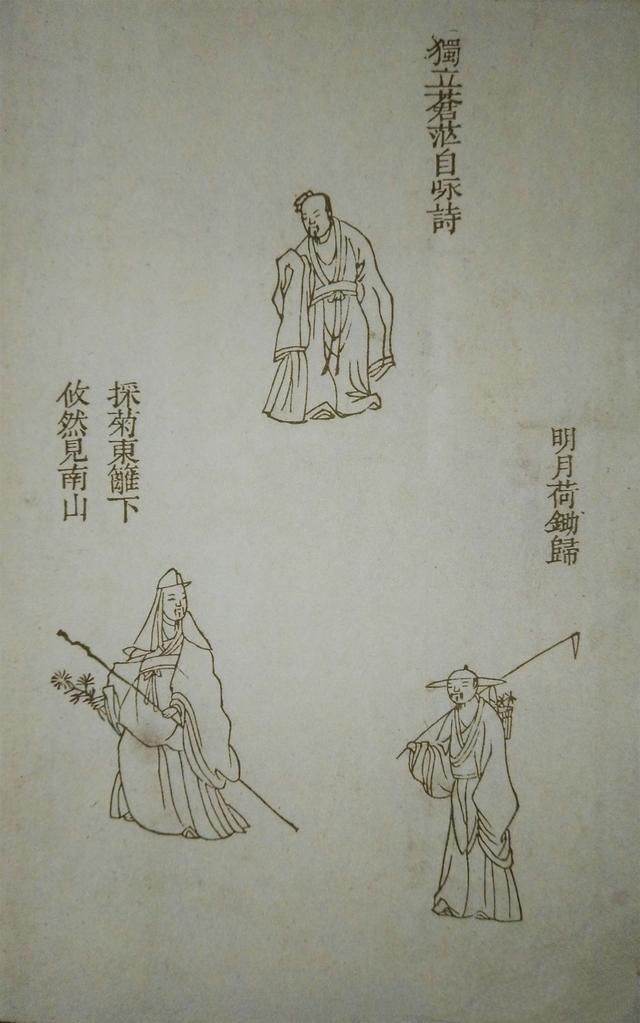 獨立蒼茫自咏詩
明月荷鋤歸
採菊東籬下
攸然見南山